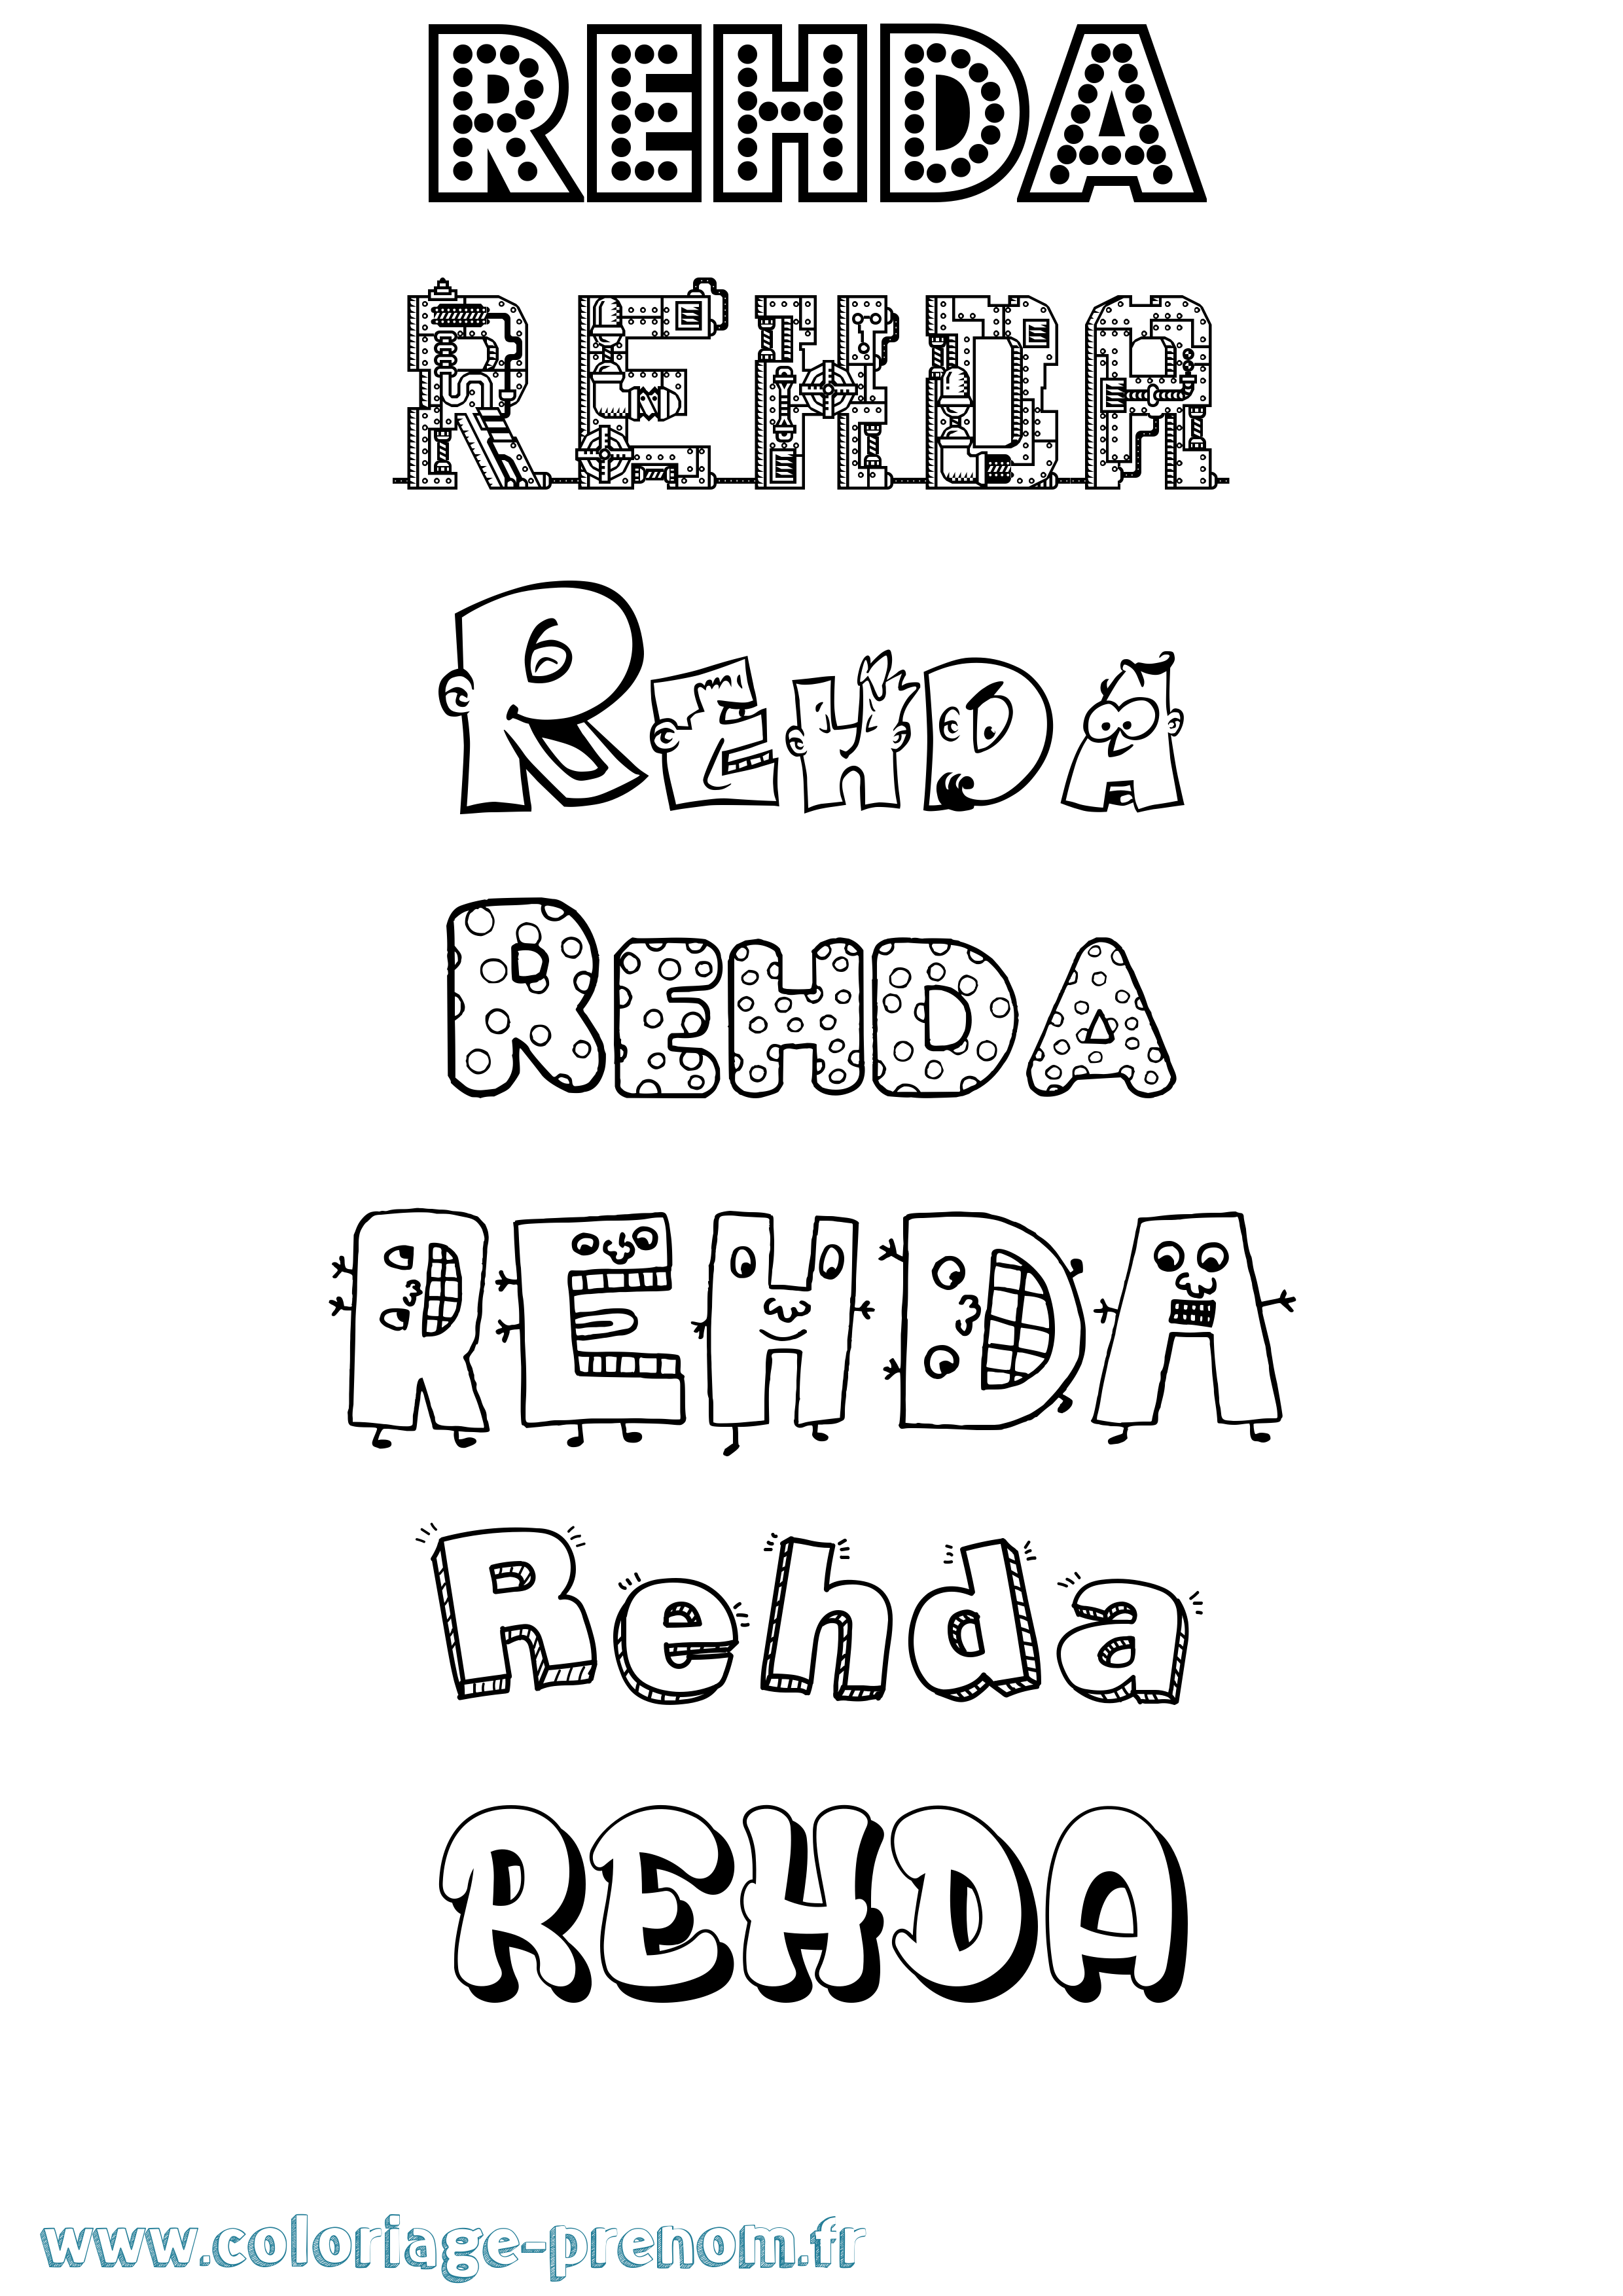 REHDA
REHDA
REHDA
REHDA
REHDA
Rehda
REHDA
www.coloriage-prenom.fr